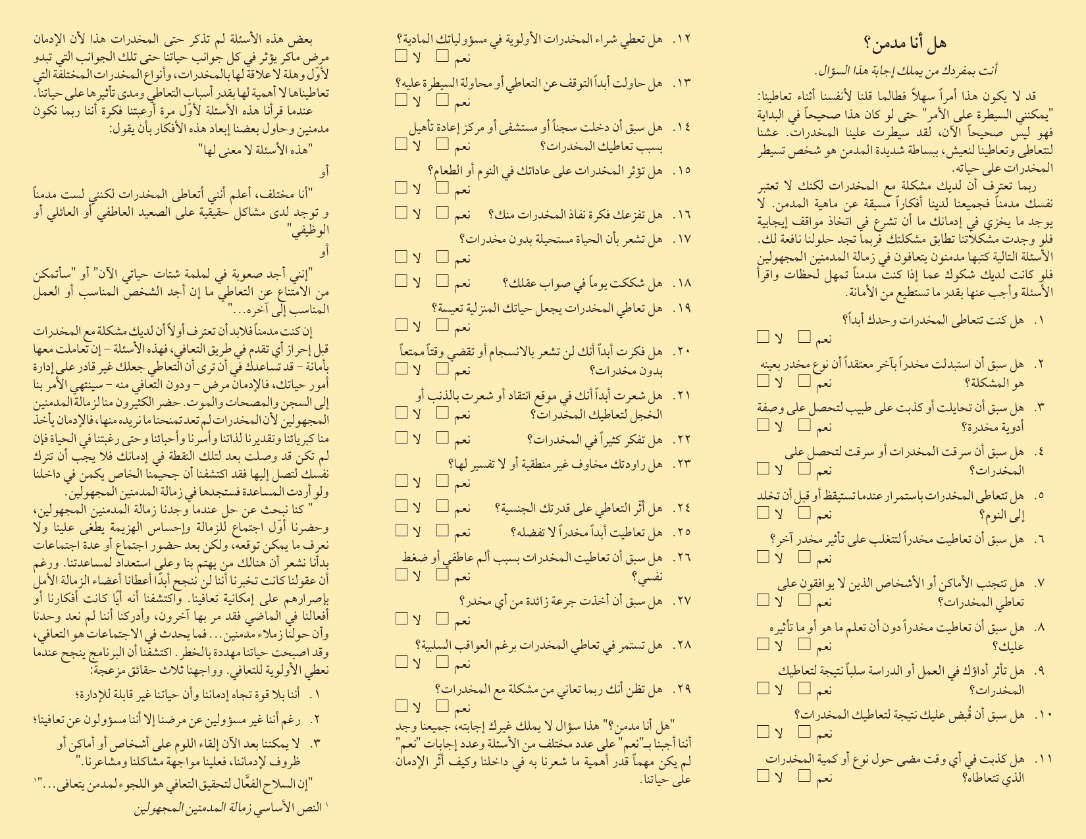 هل أنا مدمن؟
أنت بمفردك من يملك إجابة هذا السؤال.
قد لا يكون هذا أمراً سهلاً فطالما قلنا لأنفسنا أثناء تعاطينا:
"يمكنني السيطرة على الأمر" حتى لو كان هذا صحيحاً في البداية
فهو ليس صحيحاً الآن، لقد سيطرت علينا المخدرات. عشنا
لنتعاطى وتعاطينا لنعيش، ببساطة شديدة المدمن هو شخص تسيطر
المخدرات على حياته.
ربما تعترف أن لديك مشكلة مع المخدرات لكنك لا تعتبر
نفسك مدمناً فجميعنا لدينا أفكاراً مسبقة عن ماهية المدمن. لا
يوجد ما يخزي في إدمانك ما أن تشرع في اتخاذ مواقف إيجابية
فلو وجدت مشكلاتنا تطابق مشكلتك فربما تجد حلولنا نافعة لك.
الأسئلة التالية كتبها مدمنون يتعافون في زمالة المدمنين المجهولين
فلو كانت لديك شكوك عما إذا كنت مدمناً تمهل لحظات واقرأ
الأسئلة وأجب عنها بقدر ما تستطيع من الأمانة.
١. هل كنت تتعاطى المخدرات وحدك أبداً؟
نعم □ لا □
٢. هل سبق أن استبدلت مخدراً بآخر معتقداً أن نوع مخدر بعينه
هو المشكلة؟ نعم □ لا □
٣. هل سبق أن تحايلت أو كذبت على طبيب لتحصل على وصفة
أدوية مخدرة؟ نعم □ لا □
٤. هل سبق أن سرقت المخدرات أو سرقت لتحصل على
المخدرات؟ نعم □ لا □
٥. هل تتعاطى المخدرات باستمرار عندما تستيقظ أو قبل أن تخلد
إلى النوم؟ نعم □ لا □
٦. هل سبق أن تعاطيت مخدراً لتتغلب على تأثير مخدر آخر؟
نعم □ لا □
٧. هل تتجنب الأماكن أو الأشخاص الذين لا يوافقون على
تعاطي المخدرات؟ نعم □ لا □
٨. هل سبق أن تعاطيت مخدراً دون أن تعلم ما هو أو ما تأثيره
عليك؟ نعم □ لا □
٩. هل تأثر أداؤك في العمل أو الدراسة سلباً نتيجة لتعاطيك
المخدرات؟ نعم □ لا □
١٠. هل سبق أن قُبض عليك نتيجة لتعاطيك المخدرات؟
نعم □ لا □
١١. هل كذبت في أي وقت مضى حول نوع أو كمية المخدرات
الذي تتعاطاه؟ نعم □ لا □
١٢. هل تعطي شراء المخدرات الأولوية في مسؤولياتك المادية؟
نعم □ لا □
١٣. هل حاولت أبداً التوقف عن التعاطي أو محاولة السيطرة عليه؟
نعم □ لا □
١٤. هل سبق أن دخلت سجناً أو مستشفى أو مركز إعادة تأهيل
بسبب تعاطيك المخدرات؟ نعم □ لا □
١٥. هل تؤثر المخدرات على عاداتك في النوم أو الطعام؟
نعم □ لا □
١٦. هل تفزعك فكرة نفاذ المخدرات منك؟ نعم □ لا □
١٧. هل تشعر بأن الحياة مستحيلة بدون مخدرات؟
نعم □ لا □
١٨. هل شككت يوماً في صواب عقلك؟ نعم □ لا □
١٩. هل تعاطي المخدرات يجعل حياتك المنزلية تعيسة؟
نعم □ لا □
٢٠. هل فكرت أبداً أنك لن تشعر بالانسجام أو تقضي وقتاً ممتعاً
بدون مخدرات؟ نعم □ لا □
٢١. هل شعرت أبداً أنك في موقع انتقاد أو شعرت بالذنب أو
الخجل لتعاطيك المخدرات؟ نعم □ لا □
٢٢. هل تفكر كثيراً في المخدرات؟ نعم □ لا □
٢٣. هل راودتك مخاوف غير منطقية أو لا تفسير لها؟
نعم □ لا □
٢٤. هل أثّر التعاطي على قدرتك الجنسية؟ نعم □ لا □
٢٥. هل تعاطيت أبداً مخدراً لا تفضله؟ نعم □ لا □
٢٦. هل سبق أن تعاطيت المخدرات بسبب ألم عاطفي أو ضغط
نفسي؟ نعم □ لا □
٢٧. هل سبق أن أخذت جرعة زائدة من أي مخدر؟
نعم □ لا □
٢٨. هل تستمر في تعاطي المخدرات برغم العواقب السلبية؟
نعم □ لا □
٢٩. هل تظن أنك ربما تعاني من مشكلة مع المخدرات؟
نعم □ لا □
"هل أنا مدمن؟" هذا سؤال لا يملك غيرك إجابته، جميعنا وجد
أننا أجبنا بـ"نعم" على عدد مختلف من الأسئلة وعدد إجابات "نعم"
لم يكن مهماً قدر أهمية ما شعرنا به في داخلنا وكيف أثر الإدمان
على حياتنا.
بعض هذه الأسئلة لم تذكر حتى المخدرات هذا لأن الإدمان
مرض ماكر يؤثر في كل جوانب حياتنا حتى تلك الجوانب التي تبدو
لأوّل وهلة لا علاقة لها بالمخدرات، وأنواع المخدرات المختلفة التي
تعاطيناها لا أهمية لها بقدر أسباب التعاطي ومدى تأثيرها على حياتنا.
عندما قرأنا هذه الأسئلة لأوّل مرة أرعبتنا فكرة أننا ربما نكون
مدمنين وحاول بعضنا إبعاد هذه الأفكار بأن يقول:
"هذه الأسئلة لا معنى لها"
أو
"أنا مختلف، أعلم أنني أتعاطى المخدرات لكنني لست مدمناً
و توجد لدى مشاكل حقيقية على الصعيد العاطفي أو العائلي أو
الوظيفي"
أو
"إنني أجد صعوبة في لملمة شتات حياتي الآن" أو "سأتمكن
من الامتناع عن التعاطي ما إن أجد الشخص المناسب أو العمل
المناسب إلى آخره..."
إن كنت مدمناً فلابد أن تعترف أولاً أن لديك مشكلة مع المخدرات
قبل إحراز أي تقدم في طريق التعافي، فهذه الأسئلة – إن تعاملت معها
بأمانة – قد تساعدك في أن ترى أن التعاطي جعلك غير قادر على إدارة
أمور حياتك، فالإدمان مرض – ودون التعافي منه – سينتهي الأمر بنا
إلى السجن والمصحات والموت. حضر الكثيرون منا لزمالة المدمنين
المجهولين لأن المخدرات لم تعد تمنحنا ما نريده منها، فالإدمان يأخذ
منا كبريائنا وتقديرنا لذاتنا وأسرنا وأحبائنا وحتى رغبتنا في الحياة فإن
لم تكن قد وصلت بعد لتلك النقطة في إدمانك فلا يجب أن تترك
نفسك لتصل إليها فقد اكتشفنا أن جحيمنا الخاص يكمن في داخلنا
ولو أردت المساعدة فستجدها في زمالة المدمنين المجهولين.
" كنا نبحث عن حل عندما وجدنا زمالة المدمنين المجهولين،
وحضرنا أوّل اجتماع للزمالة وإحساس الهزيمة يطغى علينا ولا
نعرف ما يمكن توقعه، ولكن بعد حضور اجتماع أو عدة اجتماعات
بدأنا نشعر أن هنالك من يهتم بنا وعلى استعداد لمساعدتنا. ورغم
أن عقولنا كانت تخبرنا أننا لن ننجح أبدًا أعطانا أعضاء الزمالة الأمل
بإصرارهم على إمكانية تعافينا. واكتشفنا أنه أيًا كانت أفكارنا أو
أفعالنا في الماضي فقد مر بها آخرون، وأدركنا أننا لم نعد وحدنا
وأن حولنا زملاء مدمنين... فما يحدث في الاجتماعات هو التعافي،
وقد اصبحت حياتنا مهددة بالخطر. اكتشفنا أن البرنامج ينجح عندما
نعطي الأولوية للتعافي. وواجهنا ثلاث حقائق مزعجة:
١. أننا بلا قوة تجاه إدماننا وأن حياتنا غير قابلة للإدارة؛
٢. رغم أننا غير مسؤولين عن مرضنا إلا أننا مسؤولون عن تعافينا؛
٣. لا يمكننا بعد الآن إلقاء اللوم على أشخاص أو أماكن أو
ظروف لإدماننا، فعلينا مواجهة مشاكلنا ومشاعرنا."
"إن السلاح الفعَّال لتحقيق التعافي هو اللجوء لمدمن يتعافى..."¹
¹ النص الأساسي زمالة المدمنين المجهولين